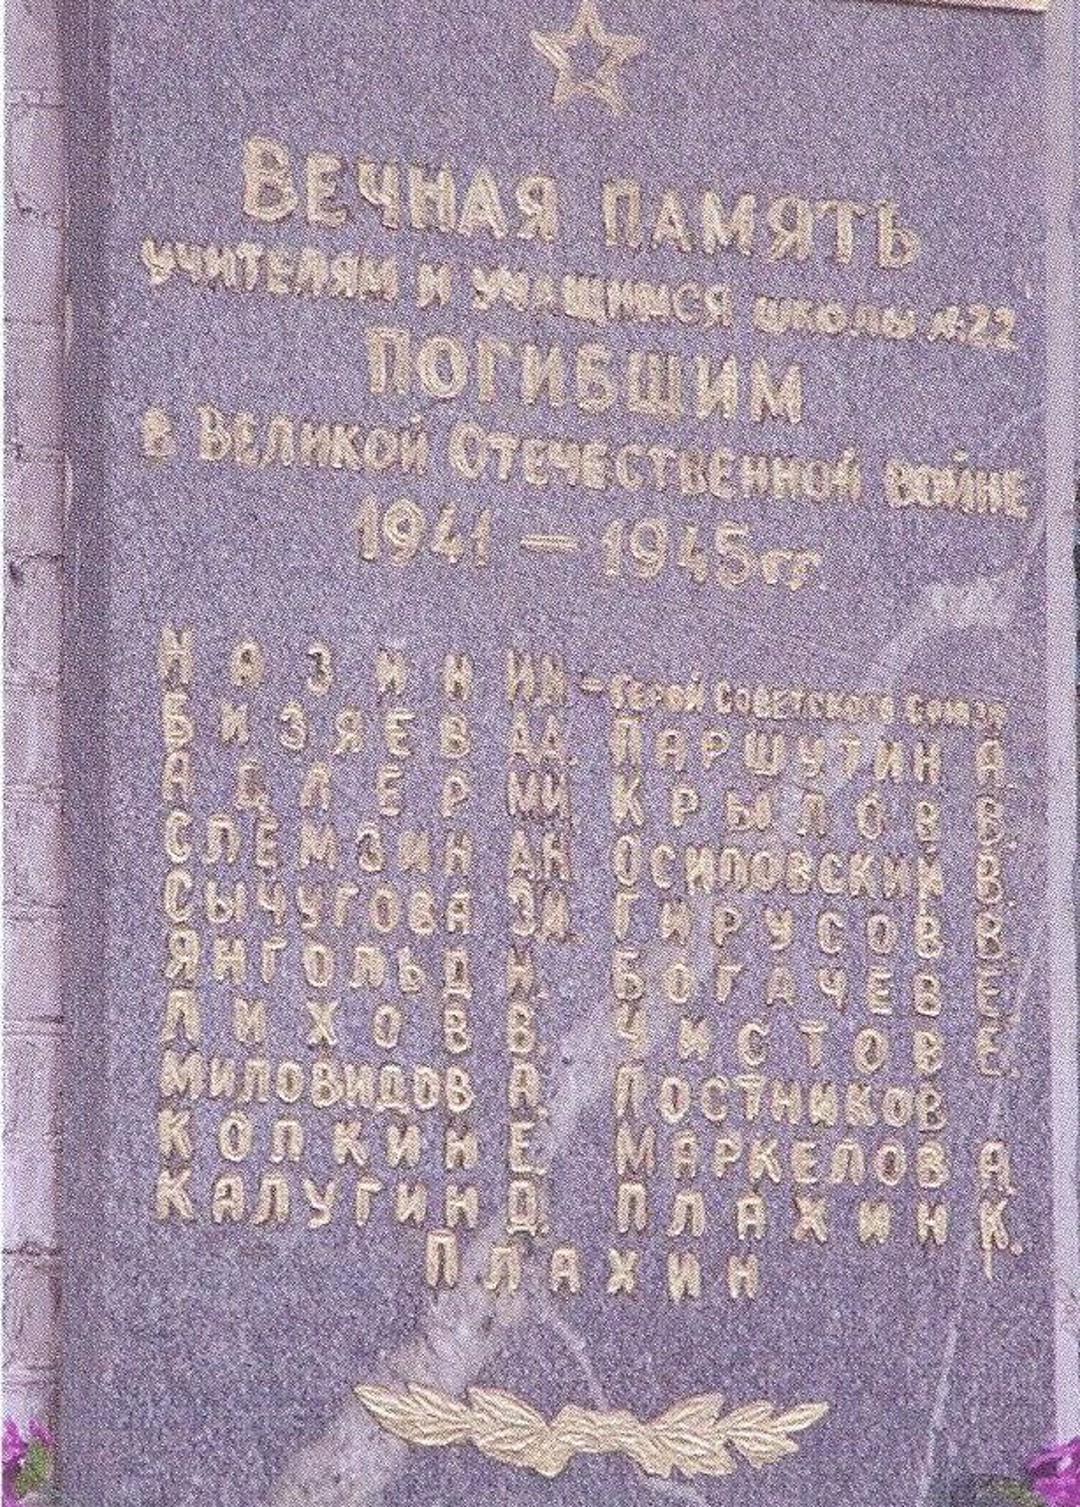 Вечная память
учителям и учащимся школы №22
погибшим
в Великой Отечественной войне
1941 – 1945 гг.
Назин И Н – Герой Советского Союза
Бизяев Д Д. Паршутин А.
Адлер М И Крылов В.
Слёмзин А Н Осиповский В.
Сычугова З И. Гирусов В.
Янгольд Н. Богачев Е.
Лихов В. Чистов Е.
Миловидов А. Постников
Колкин Е. Маркелов А.
Калугин Д. Плахин К.
Плахин